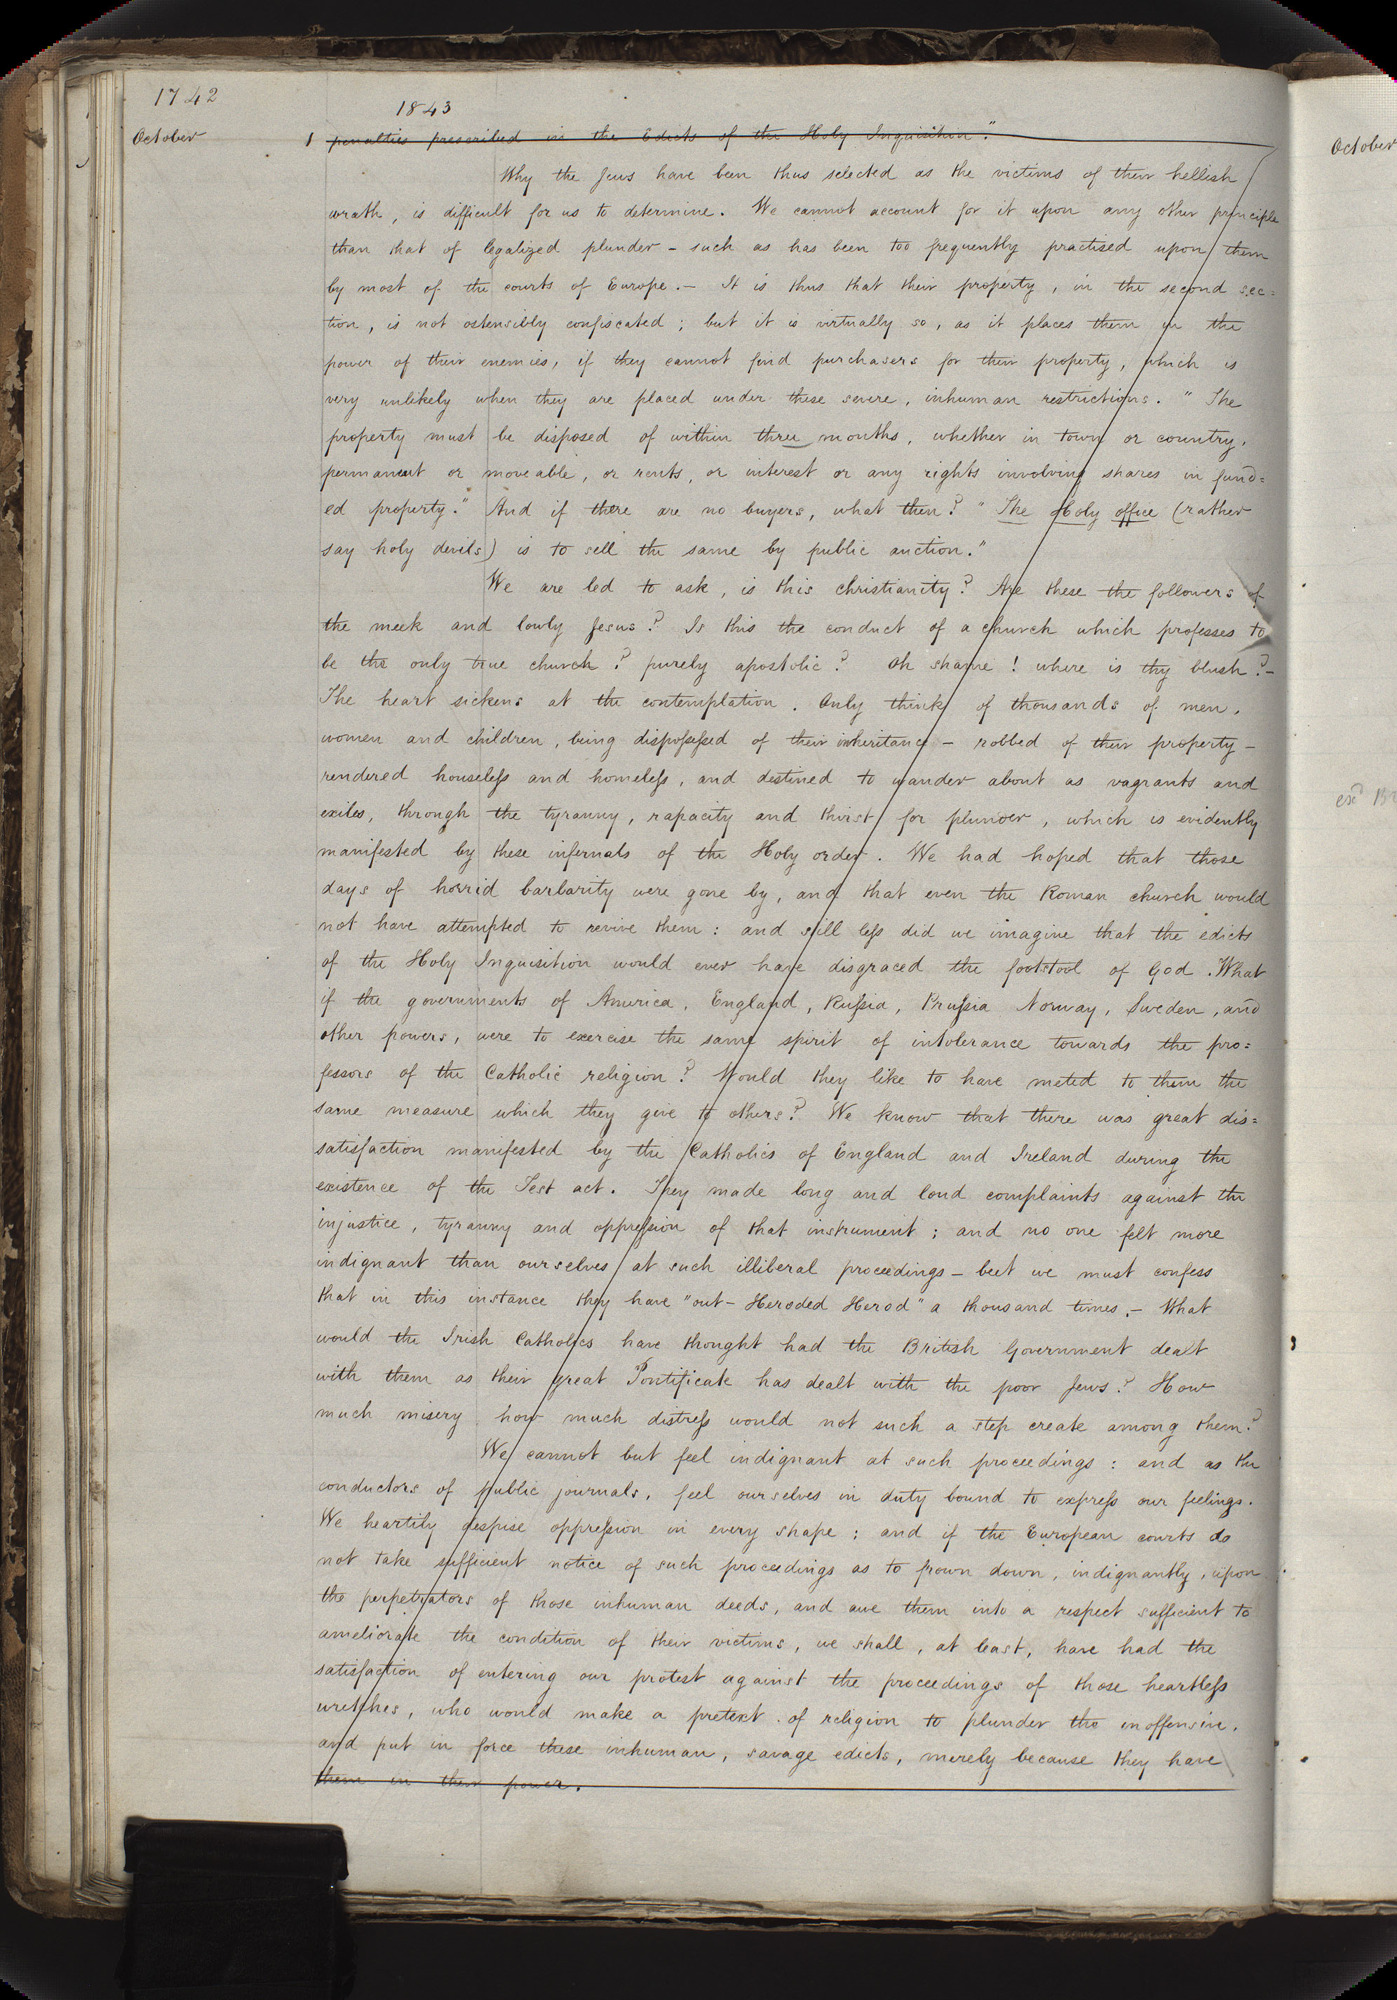 1742
1843
October
1 penalties prescribed in the Edicts of the Holy Inquisition."
Why the Jews have been thus selected as the victims of their hellish
wrath, is difficult for us to determine. We cannot account for it upon any other principle
than that of legalized plunder – such as has been too frequently practised upon them
by most of the courts of Europe. – It is thus that their property, in the second sec=
tion, is not ostensibly confiscated; but it is virtually so, as it places them in the
power of their enemies, if they cannot find purchasers for their property, which is
very unlikely when they are placed under these severe, inhuman restrictions. "The
property must be disposed of within three months, whether in town or country,
permanent or moveable, or rents, or interest or any rights involving shares in fund=
ed property." And if there are no buyers, what then? "The Holy office (rather
say holy devils) is to sell the same by public auction."
We are led to ask, is this christianity? Are these the followers of
the meek and lowly Jesus? Is this the conduct of a church which professes to
be the only true church? purely apostolic? Oh shame! where is thy blush? –
The heart sickens at the contemplation. Only think of thousands of men,
women and children, being dispossessed of their inheritance – robbed of their property –
rendered houseless and homeless, and destined to wander about as vagrants and
exiles, through the tyranny, rapacity and thirst for plunder, which is evidently
manifested by these infernals of the Holy order. We had hoped that those
days of horrid barbarity were gone by, and that even the Roman church would
not have attempted to revive them: and still less did we imagine that the edicts
of the Holy Inquisition would ever have disgraced the footstool of God. What
if the governments of America, England, Russia, Prussia Norway, Sweden, and
other powers, were to exercise the same spirit of intolerance towards the pro=
fessors of the Catholic religion? Would they like to have meted to them the
same measure which they give to others? We know that there was great dis=
satisfaction manifested by the Catholics of England and Ireland during the
existence of the Test act. They made long and loud complaints against the
injustice, tyranny and oppression of that instrument; and no one felt more
indignant than ourselves at such illiberal proceedings – but we must confess
that in this instance they have "out-Heroded Herod" a thousand times. – What
would the Irish Catholics have thought had the British Government dealt
with them as their great Pontificate has dealt with the poor Jews? How
much misery how much distress would not such a step create among them?
We cannot but feel indignant at such proceedings: and as the
conductors of public journals, feel ourselves in duty bound to express our feelings.
We heartily despise oppression in every shape; and if the European courts do
not take sufficient notice of such proceedings as to frown down, indignantly, upon
the perpetrators of those inhuman deeds, and awe them into a respect sufficient to
ameliorate the condition of their victims, we shall, at least, have had the
satisfaction of entering our protest against the proceedings of those heartless
wretches, who would make a pretext of religion to plunder the inoffensive,
and put in force these inhuman, savage edicts, merely because they have
them in their power.
October